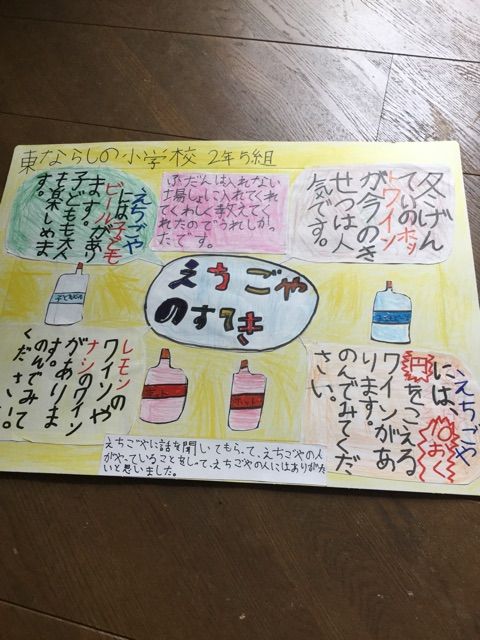 東ならしの小学校 2年5組
えちごや
には子ども
ビールがあり
ます。
子どもも大人
も楽しめま
す。
ふだんは入れない
場しょに入れてくれ
てくわしく教えてく
れたのでうれしかっ
たです。
冬げん
ていのホッ
トワイン
が今のき
せつは人
気です。
えちごや
のすてき
子どもビール
レモンの
ワインや
ナシのワイン
がありま
す。
のんでみて
ください。
ホット
えちごや
には、
円をこえる
ワインがあ
ります。
のんでみてくだ
さい。
えちごやに話を聞いてもらって、えちごやの人
がやっていることをしって、えちごやの人にはありがた
いと思いました。